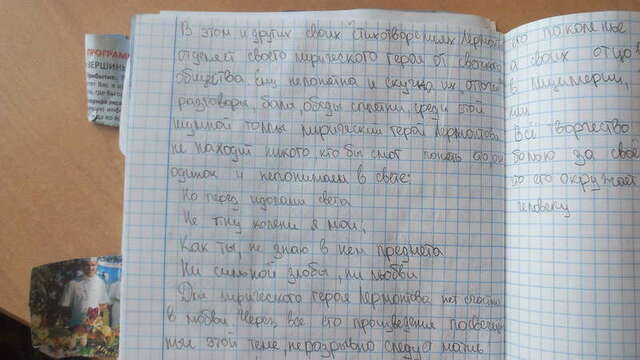 В этом и других своих стихотворениях Лермонто
отделяет своего лирического героя от светского
общества. Ему непонятна и скучна их
разговоры, балы, обеды, сплетни, среди этой
шумной толпы лирический герой Лермонтова
не находит никого, кто бы смог понять его, он
одинок и непонимаем в свете:
Но перед идолами света
Не гну колени я мои;
Как ты, не знаю в нем предмета
Ни сильной злобы, ни любви
Для лирического героя Лермонтова нет счастья
в любви. Через все его произведения посвящен
ные этой теме, неразрывно следует мотив
то поколенье
а своих отцов
в лицемерии,
ии
Всё творчество
болью за своё
то его окружает
человеку
ПРОГРАММ
ВЕРШИН